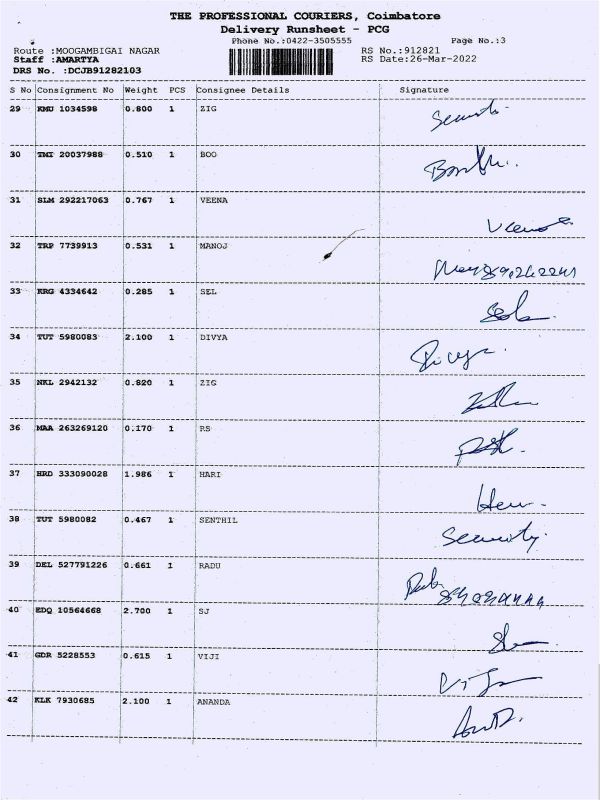 THE PROFESSIONAL COURIERS, Coimbatore
Delivery Runsheet - PCG
Phone No.:0422-3505555 Page No.:3
Route :MOOGAMBIGAI NAGAR RS No.:912821
Staff :AMARTYA RS Date:26-Mar-2022
DRS No. :DCJB91282103
S No Consignment No Weight PCS Consignee Details Signature
29 KMU 1034598 0.800 1 ZIG
30 TMI 20037988 0.510 1 BOO
31 SLM 292217063 0.767 1 VEENA Veena
32 TRP 7739913 0.531 1 MANOJ
33 KRG 4334642 0.285 1 SEL
34 TUT 5980083 2.100 1 DIVYA Divya
35 NKL 2942132 0.820 1 ZIG
36 MAA 263269120 0.170 1 RS
37 HRD 333090028 1.986 1 HARI
38 TUT 5980082 0.467 1 SENTHIL Security
39 DEL 527791226 0.661 1 RADU
40 EDQ 10564668 2.700 1 SJ
41 GDR 5228553 0.615 1 VIJI
42 KLK 7930685 2.100 1 ANANDA